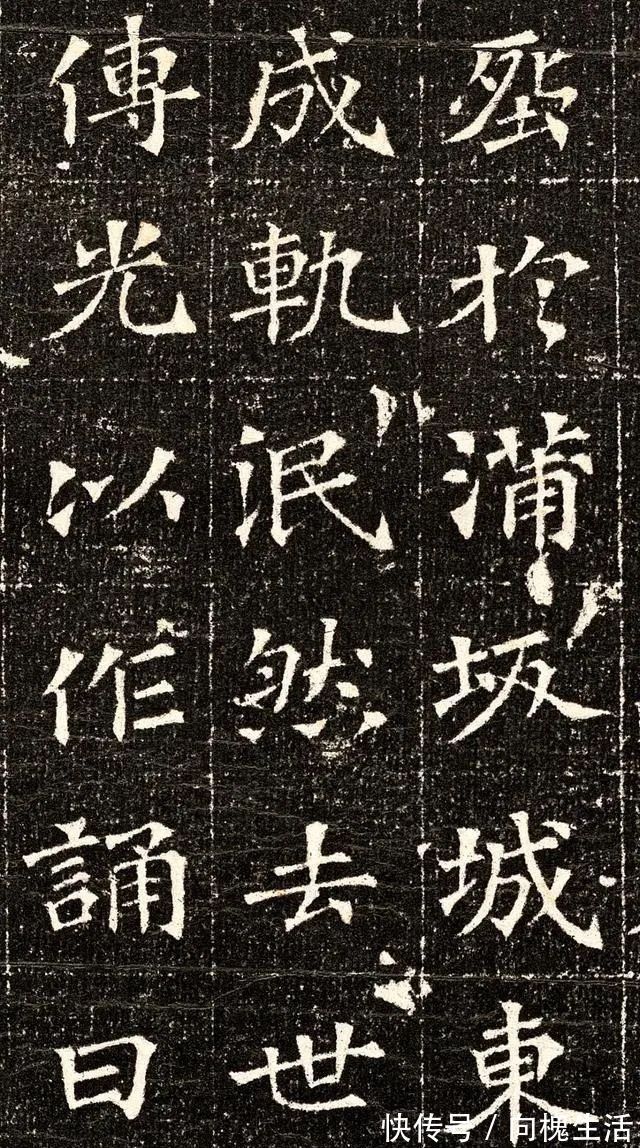 葬於蒲坂城東
成軌泯然去世
傳光以作誦曰
快传号/向槐生活